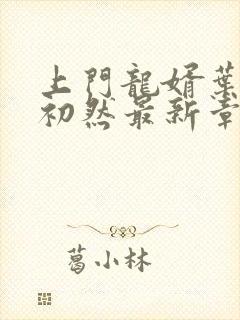 上門龍婿葉
初然最新章
葛小林